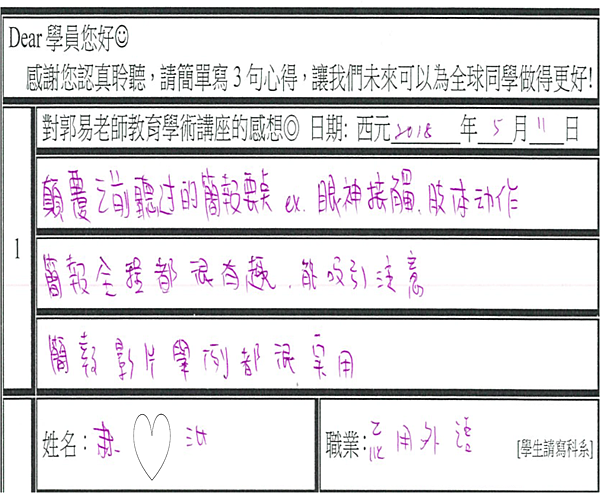 Dear 學員您好☺
感謝您認真聆聽，請簡單寫 3 句心得，讓我們未來可以為全球同學做得更好!
對郭易老師教育學術講座的感想◎ 日期: 西元 2018 年 5 月 11 日
顛覆之前聽过的簡報要点 ex. 眼神接觸、肢体动作
1
簡報全程都很有趣、能吸引注意
簡報影片舉例都很実用
姓名: ♡ 職業: 应用外語 [學生請寫科系]